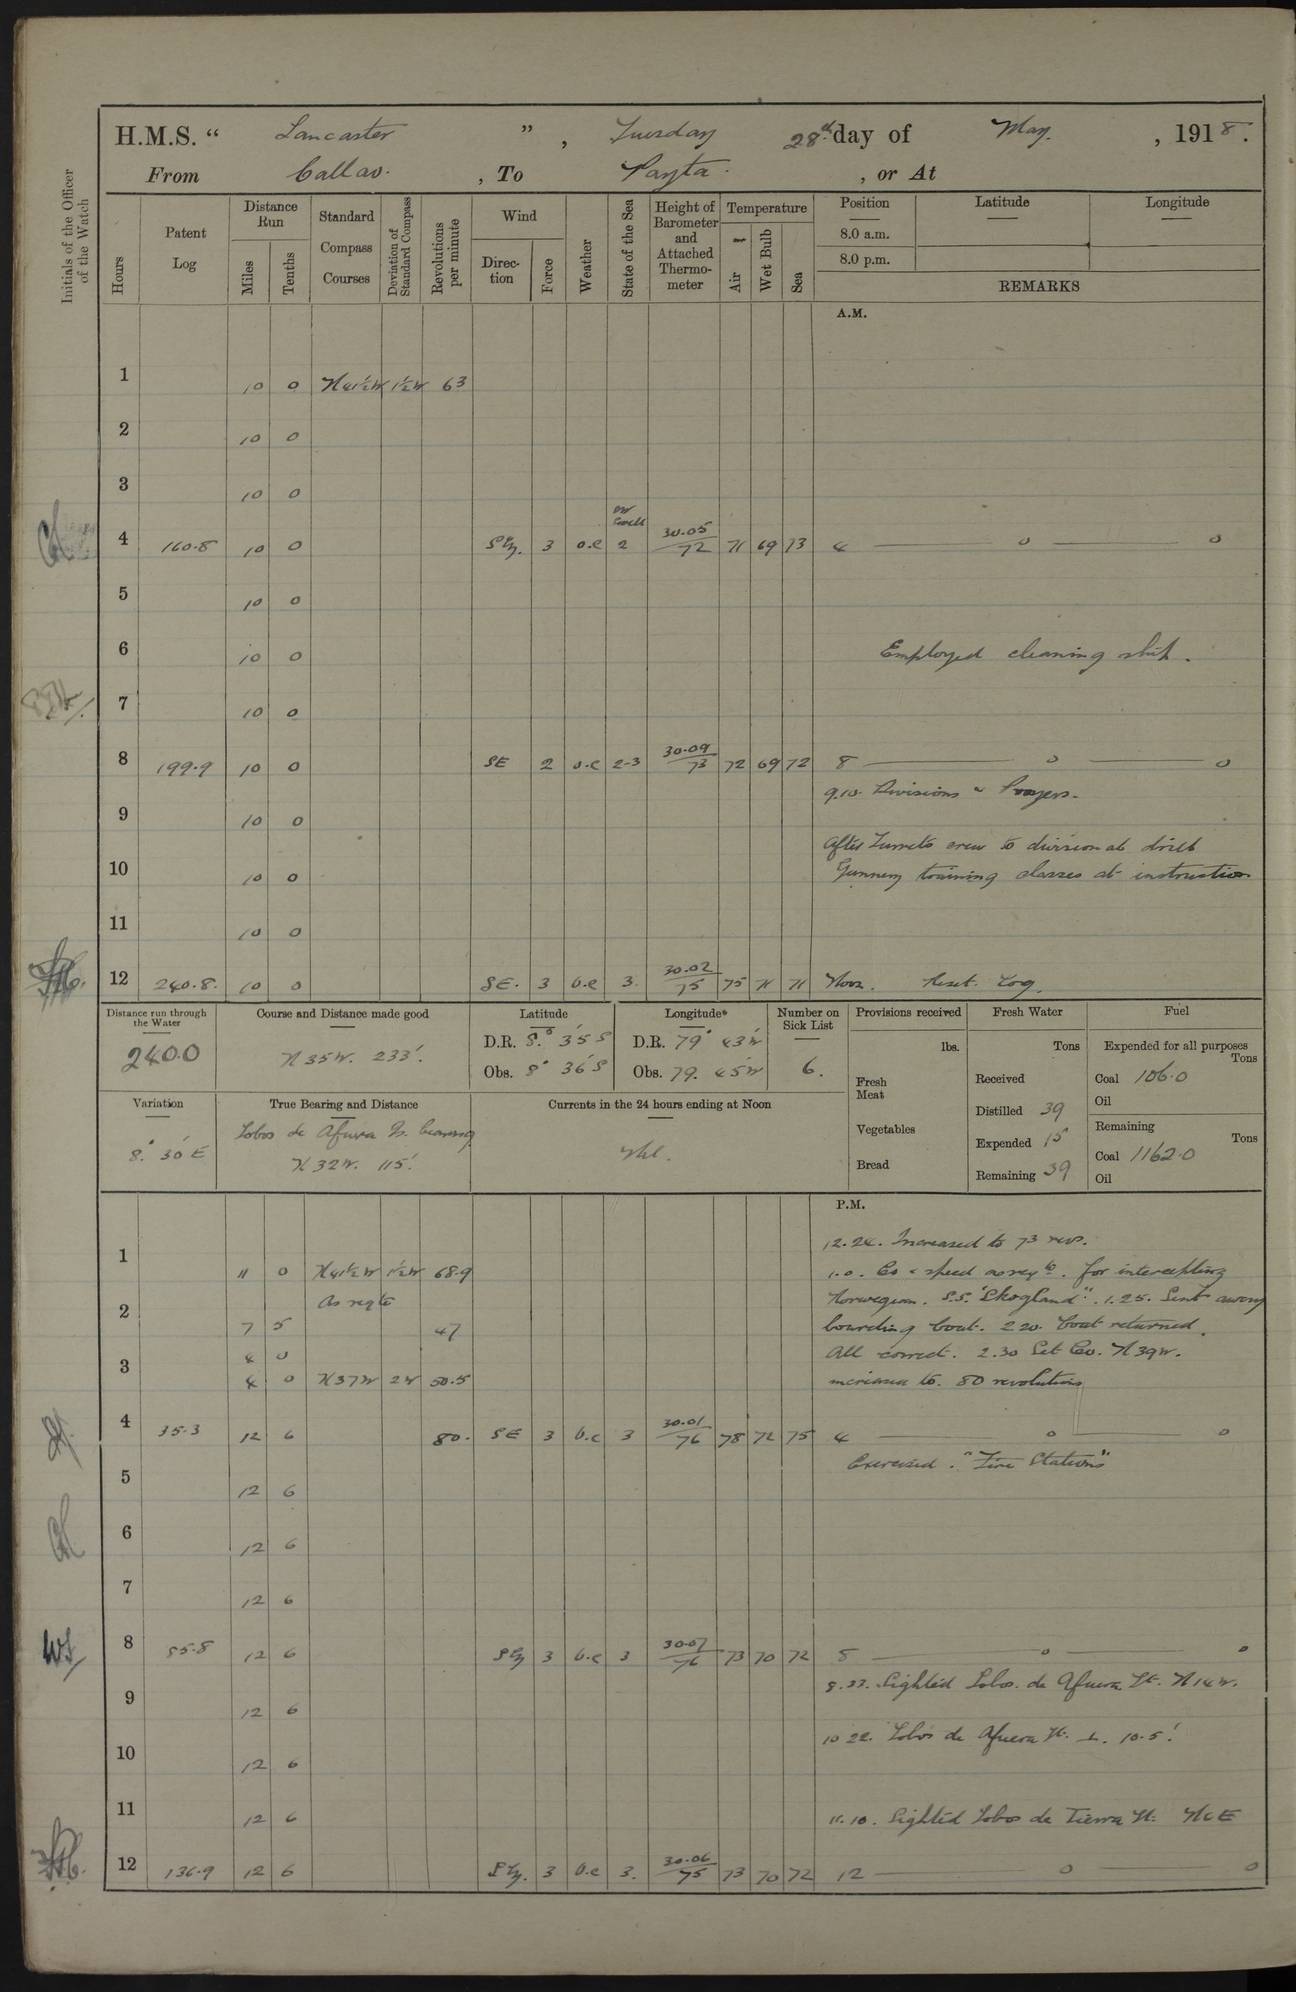 H.M.S. “ Lancaster ” , Tuesday 28th day of May. , 1918.
From Callao. , To Payta. , or At
Initials of the Officer of the Watch
Hours
Patent Log
Distance Run
Miles
Tenths
Standard Compass Courses
Deviation of Standard Compass
Revolutions per minute
Wind
Direction
Force
Weather
State of the Sea
Height of Barometer and Attached Thermometer
Temperature
Air
Wet Bulb
Sea
Position
Latitude
Longitude
8.0 a.m.
8.0 p.m.
REMARKS
A.M.
1 10 0 N41½W 1½W 63
2 10 0
3 10 0
4 160.8 10 0 SEly. 3 o.c 2 swell 30.05 72 71 69 73 4 — 0 — 0
5 10 0
6 10 0 Employed cleaning ship.
7 10 0
8 199.9 10 0 SE 2 o.c 2-3 30.09 73 72 69 72 8 — 0 — 0
9.10. Divisions & Prayers.
9 10 0
After Turrets crew to divisional drill
10 10 0 Gunnery training classes at instruction
11 10 0
12 240.8. 10 0 SE. 3 b.c 3. 30.02 75 75 71 71 Noon. Reset Log.
Distance run through the Water
2400
Course and Distance made good
N 35 W. 233'.
Latitude
D.R. 8.° 35' S
Obs. 8° 36' S
Longitude*
D.R. 79° 43' W
Obs. 79. 45' W
Number on Sick List
6.
Provisions received
lbs.
Fresh Meat
Vegetables
Bread
Fresh Water
Tons
Received
Distilled 39
Expended 15
Remaining 39
Fuel
Expended for all purposes
Tons
Coal 106.0
Oil
Remaining
Tons
Coal 1162.0
Oil
Variation
8.° 30' E
True Bearing and Distance
Lobos de Afuera Is. bearing
N 32 W. 115'.
Currents in the 24 hours ending at Noon
Nil.
P.M.
12.24. Increased to 73 revs.
1 11 0 N41½W 1½W 68.9 1.0. Co & speed as reqte. for intercepting
As reqte Norwegian. S.S. "Skogland". 1.25. Sent away
2 7 5 47 boarding boat. 2.20. boat returned.
4 0 All correct. 2.30 Set Co. N39W.
3 4 0 N37W 2W 50.5 increased to. 80 revolutions
4 35.3 12 6 80. SE 3 b.c 3 30.01 76 78 72 75 4 — 0 — 0
Exercised. "Fire Stations"
5 12 6
6 12 6
7 12 6
8 85.8 12 6 SEly 3 b.c 3 30.07 76 73 70 72 8 — 0 — 0
8.37. Sighted Lobos. de Afuera Lt. N14W.
9 12 6
10 22. Lobos de Afuera Lt. ⊥. 10.5'.
10 12 6
11 12 6 11.10. Sighted Lobos de Tierra Lt. N6E
12 136.9 12 6 SEly. 3 b.c 3. 30.06 75 73 70 72 12 — 0 — 0